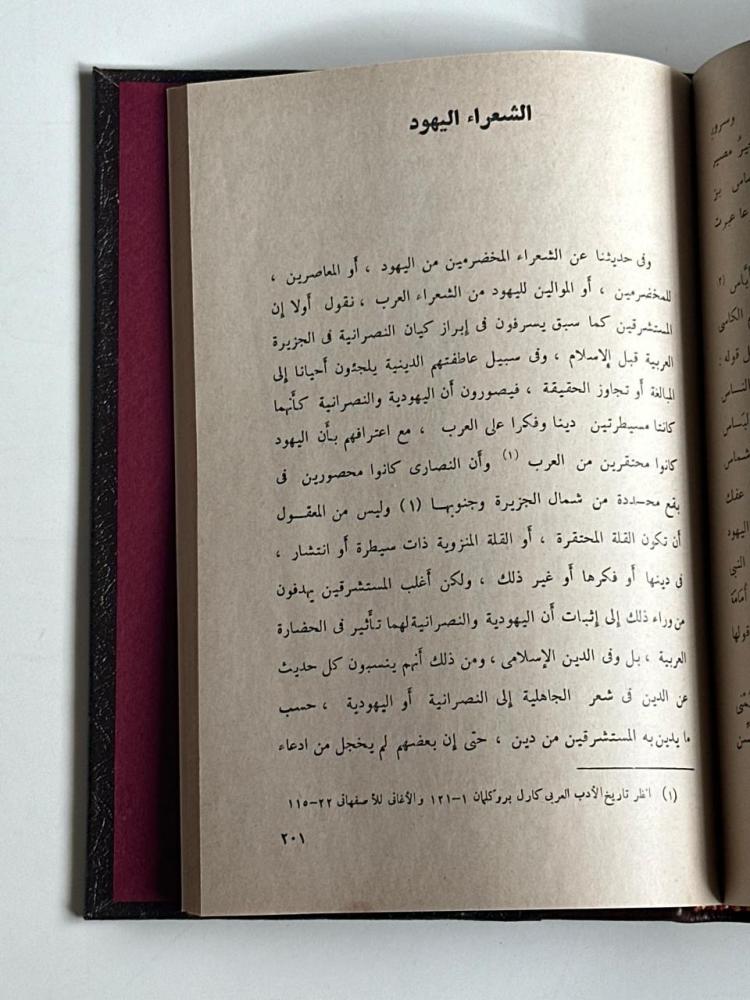 الشعراء اليهود
وفى حديثنا عن الشعراء المخضرمين من اليهود ، أو المعاصرين ،
للمخضرمين ، أو الموالين لليهود من الشعراء العرب ، نقول أولا إن
المستشرقين كما سبق يسرفون فى إبراز كيان النصرانية فى الجزيرة
العربية قبل الإسلام ، وفى سبيل عاطفتهم الدينية يلجئون أحيانا إلى
المبالغة أو تجاوز الحقيقة ، فيصورون أن اليهودية والنصرانية كأنهما
كانتا مسيطرتين دينا وفكرا على العرب ، مع اعترافهم بأن اليهود
كانوا محتقرين من العرب (١) وأن النصارى كانوا محصورين فى
بقع محددة من شمال الجزيرة وجنوبها (١) وليس من المعقول
أن تكون القلة المحتقرة ، أو القلة المنزوية ذات سيطرة أو انتشار ،
فى دينها أو فكرها أو غير ذلك ، ولكن أغلب المستشرقين يهدفون
من وراء ذلك إلى إثبات أن اليهودية والنصرانية لهما تأثير فى الحضارة
العربية ، بل وفى الدين الإسلامى ، ومن ذلك أنهم ينسبون كل حديث
عن الدين فى شعر الجاهلية إلى النصرانية أو اليهودية ، حسب
ما يدين به المستشرقين من دين ، حتى إن بعضهم لم يخجل من ادعاء
(١) انظر تاريخ الأدب العربى كارل بروكلمان ١-١٢١ والأغانى للأصفهانى ٢٢-١١٥
٢٠١
وسرو
مصير
عا عبرت
الكاسى
ل قوله :
الناس
شماس
عفك
اليهود
النبى
أمامة
قولها